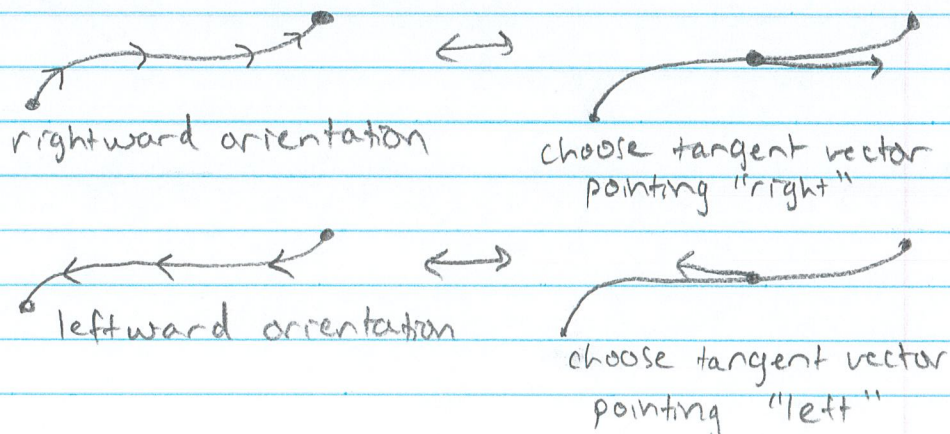 rightward orientation
choose tangent vector
pointing "right"
leftward orientation
choose tangent vector
pointing "left"